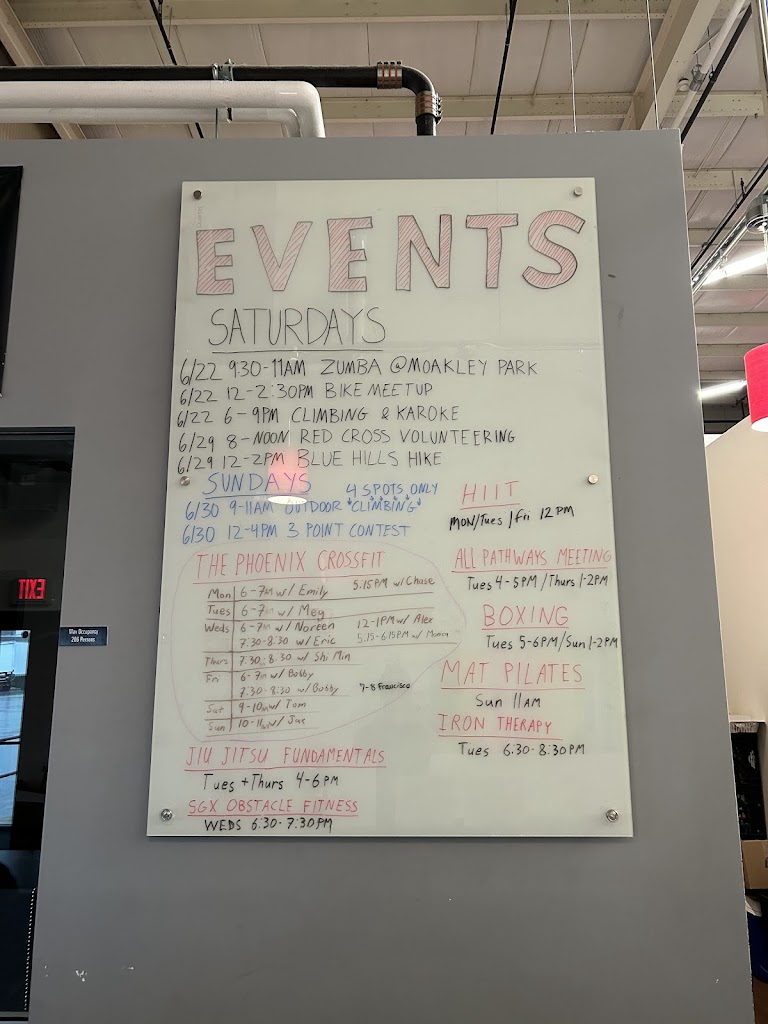 EVENTS
SATURDAYS
6/22 9:30-11AM ZUMBA @MOAKLEY PARK
6/22 12-2:30PM BIKE MEETUP
6/22 6-9PM CLIMBING & KAROKE
6/29 8-NOON RED CROSS VOLUNTEERING
6/29 12-2PM BLUE HILLS HIKE
SUNDAYS 4 SPOTS ONLY
6/30 9-11AM OUTDOOR "CLIMBING"
6/30 12-4PM 3 POINT CONTEST
THE PHOENIX CROSSFIT
Mon 6-7am w/ Emily 5:15PM w/ Chase
Tues 6-7am w/ Meg
Weds 6-7am w/ Noreen 12-1PM w/ Alex
7:30-8:30 w/ Eric 5:15-6:15PM w/
Thurs 7:30-8:30 w/ Shi Min
Fri 6-7am w/ Bobby
7:30-8:30 w/ Bobby 7-8 Francisco
Sat 9-10am w/ Tom
Sun 10-11am w/ Jac
JIU JITSU FUNDAMENTALS
Tues + Thurs 4-6PM
SGX OBSTACLE FITNESS
WEDS 6:30-7:30PM
HIIT
MON/Tues/Fri 12PM
ALL PATHWAYS MEETING
Tues 4-5PM/Thurs 1-2PM
BOXING
Tues 5-6PM/Sun 1-2PM
MAT PILATES
Sun 11AM
IRON THERAPY
Tues 6:30-8:30PM
EXIT
Max Occupancy
266 Persons